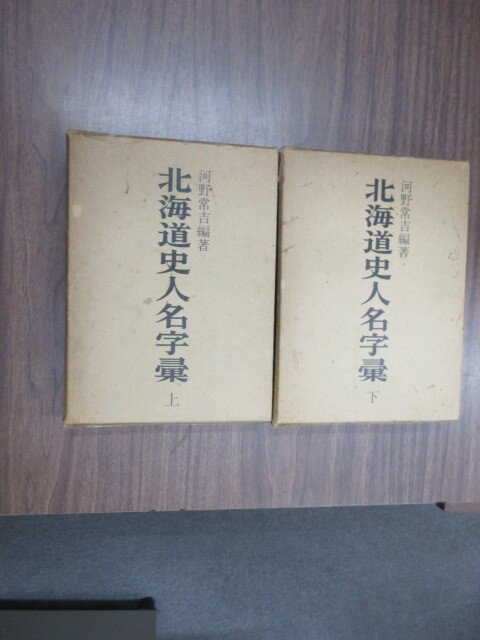 河野常吉編著
北海道史人名字彙
上
河野常吉編著
北海道史人名字彙
下